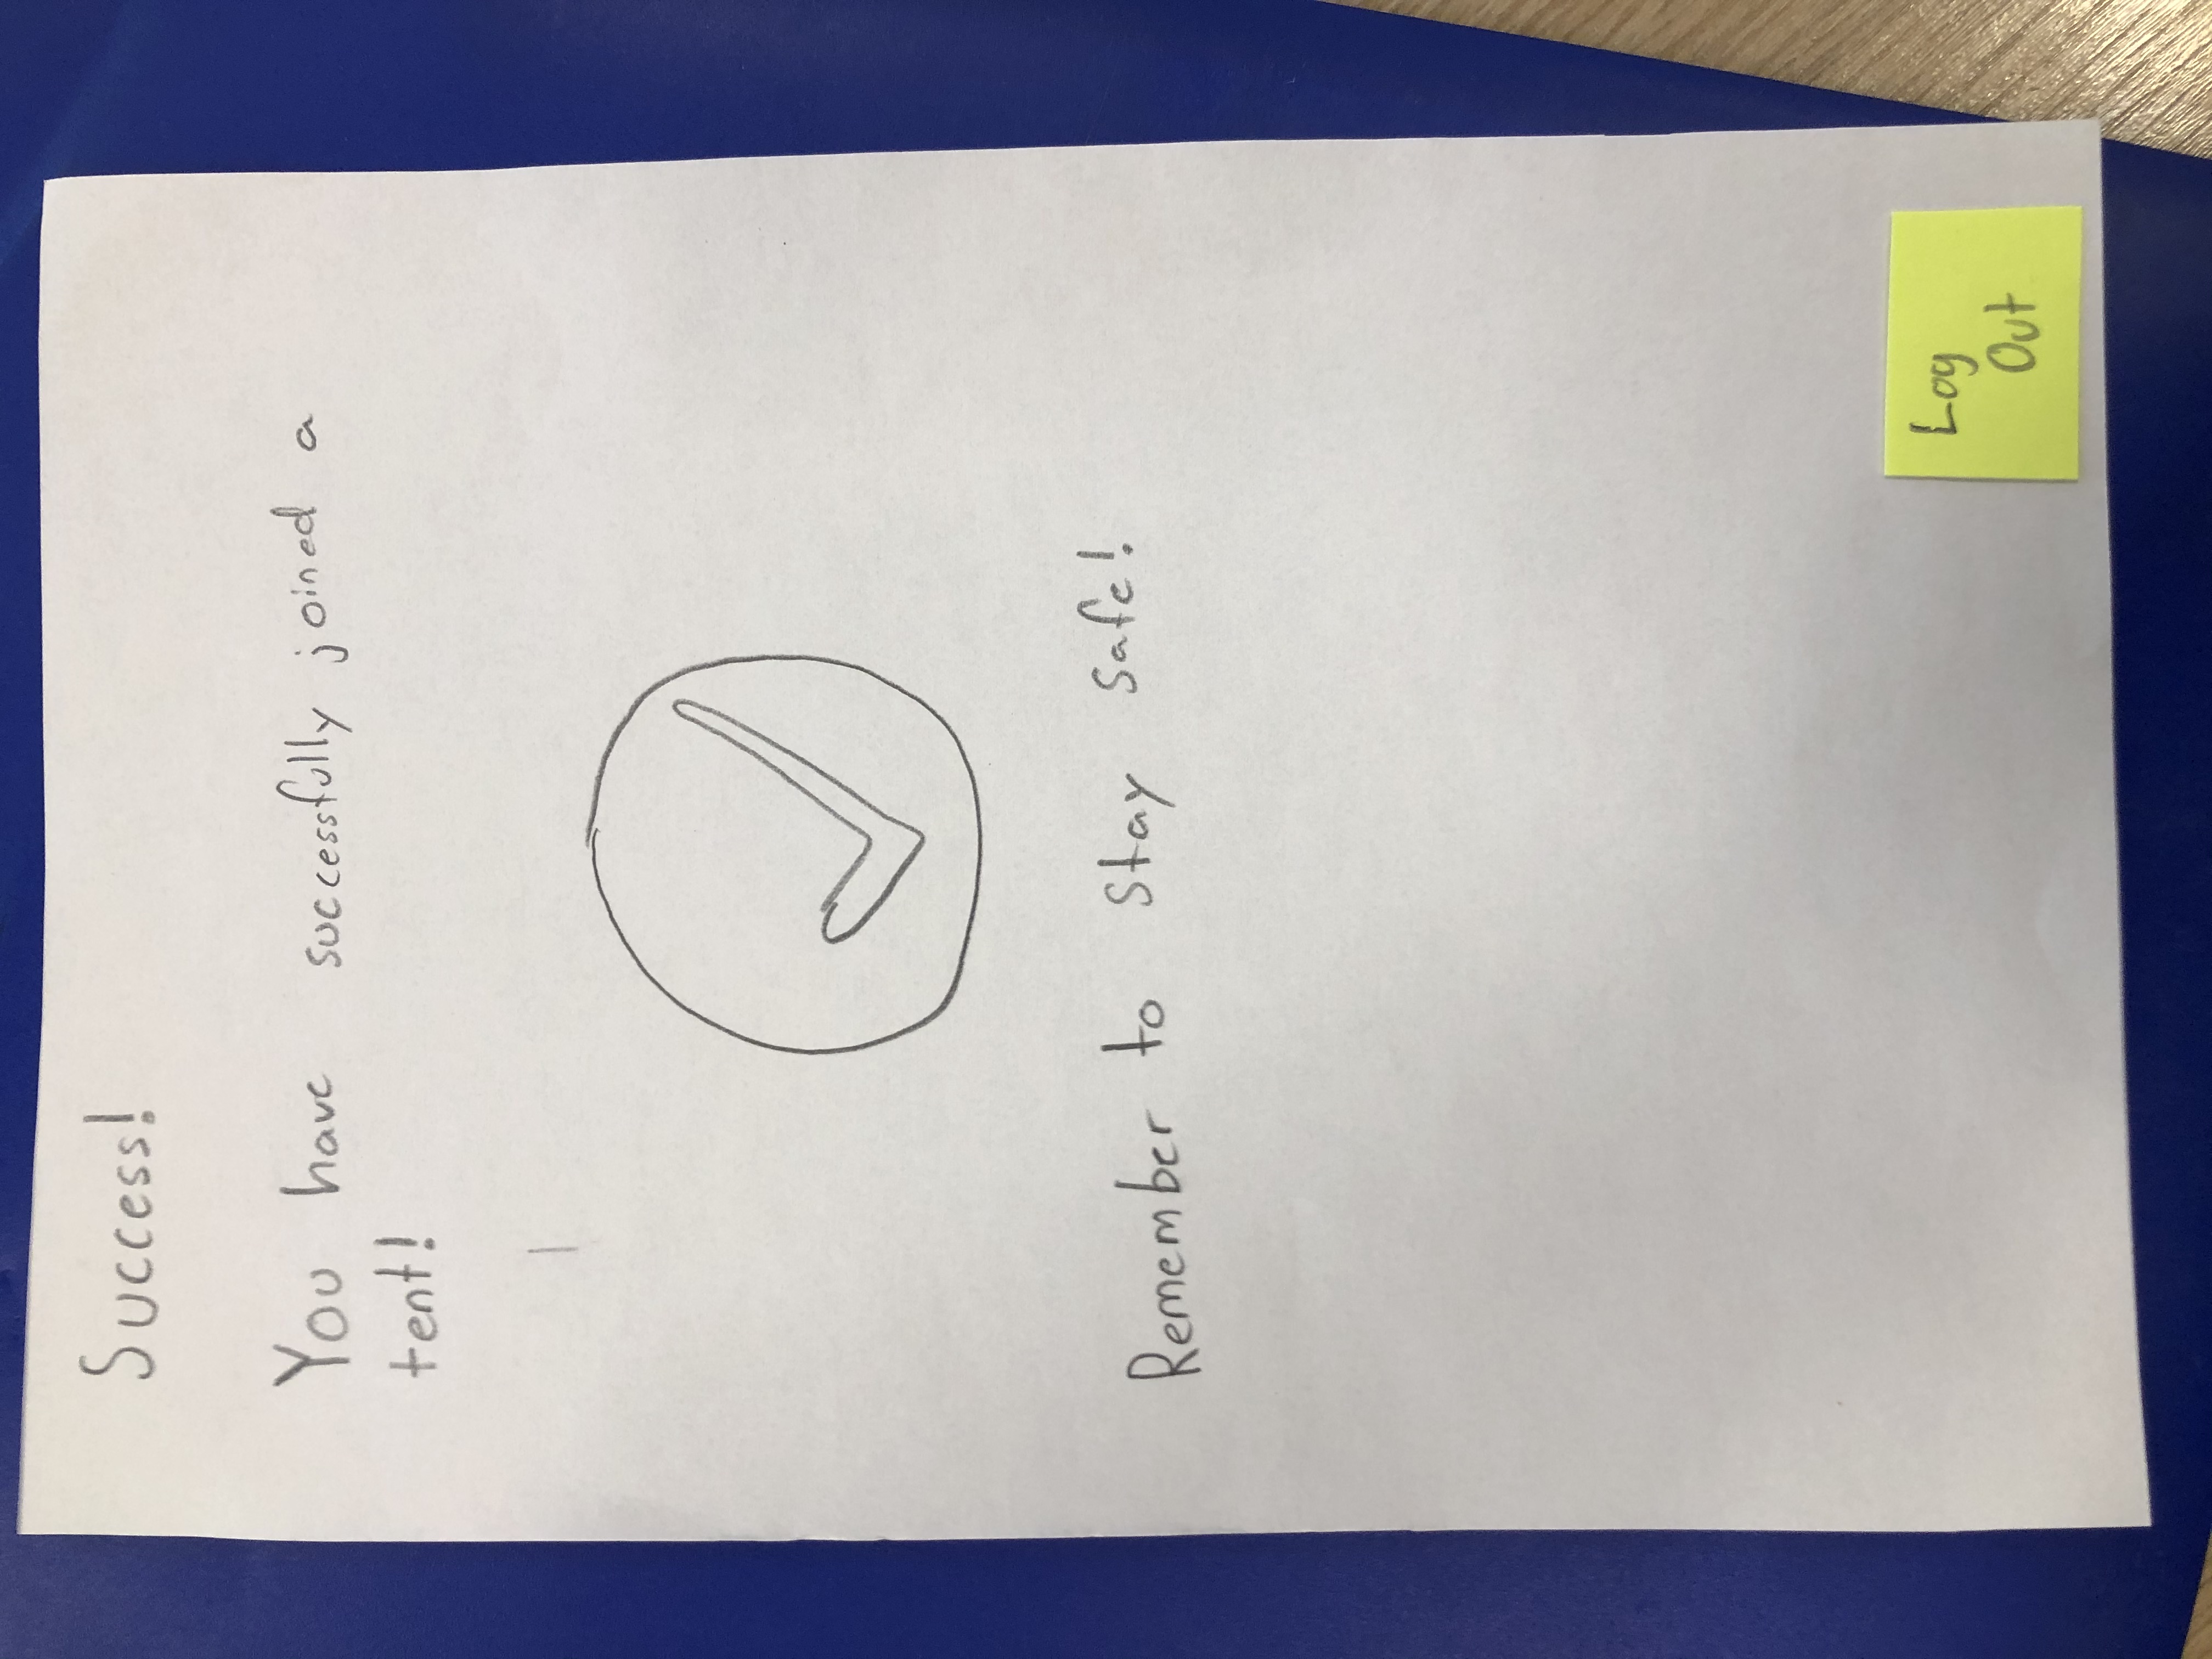 Success!
You have successfully joined a
tent!
Remember to stay safe!
Log
Out